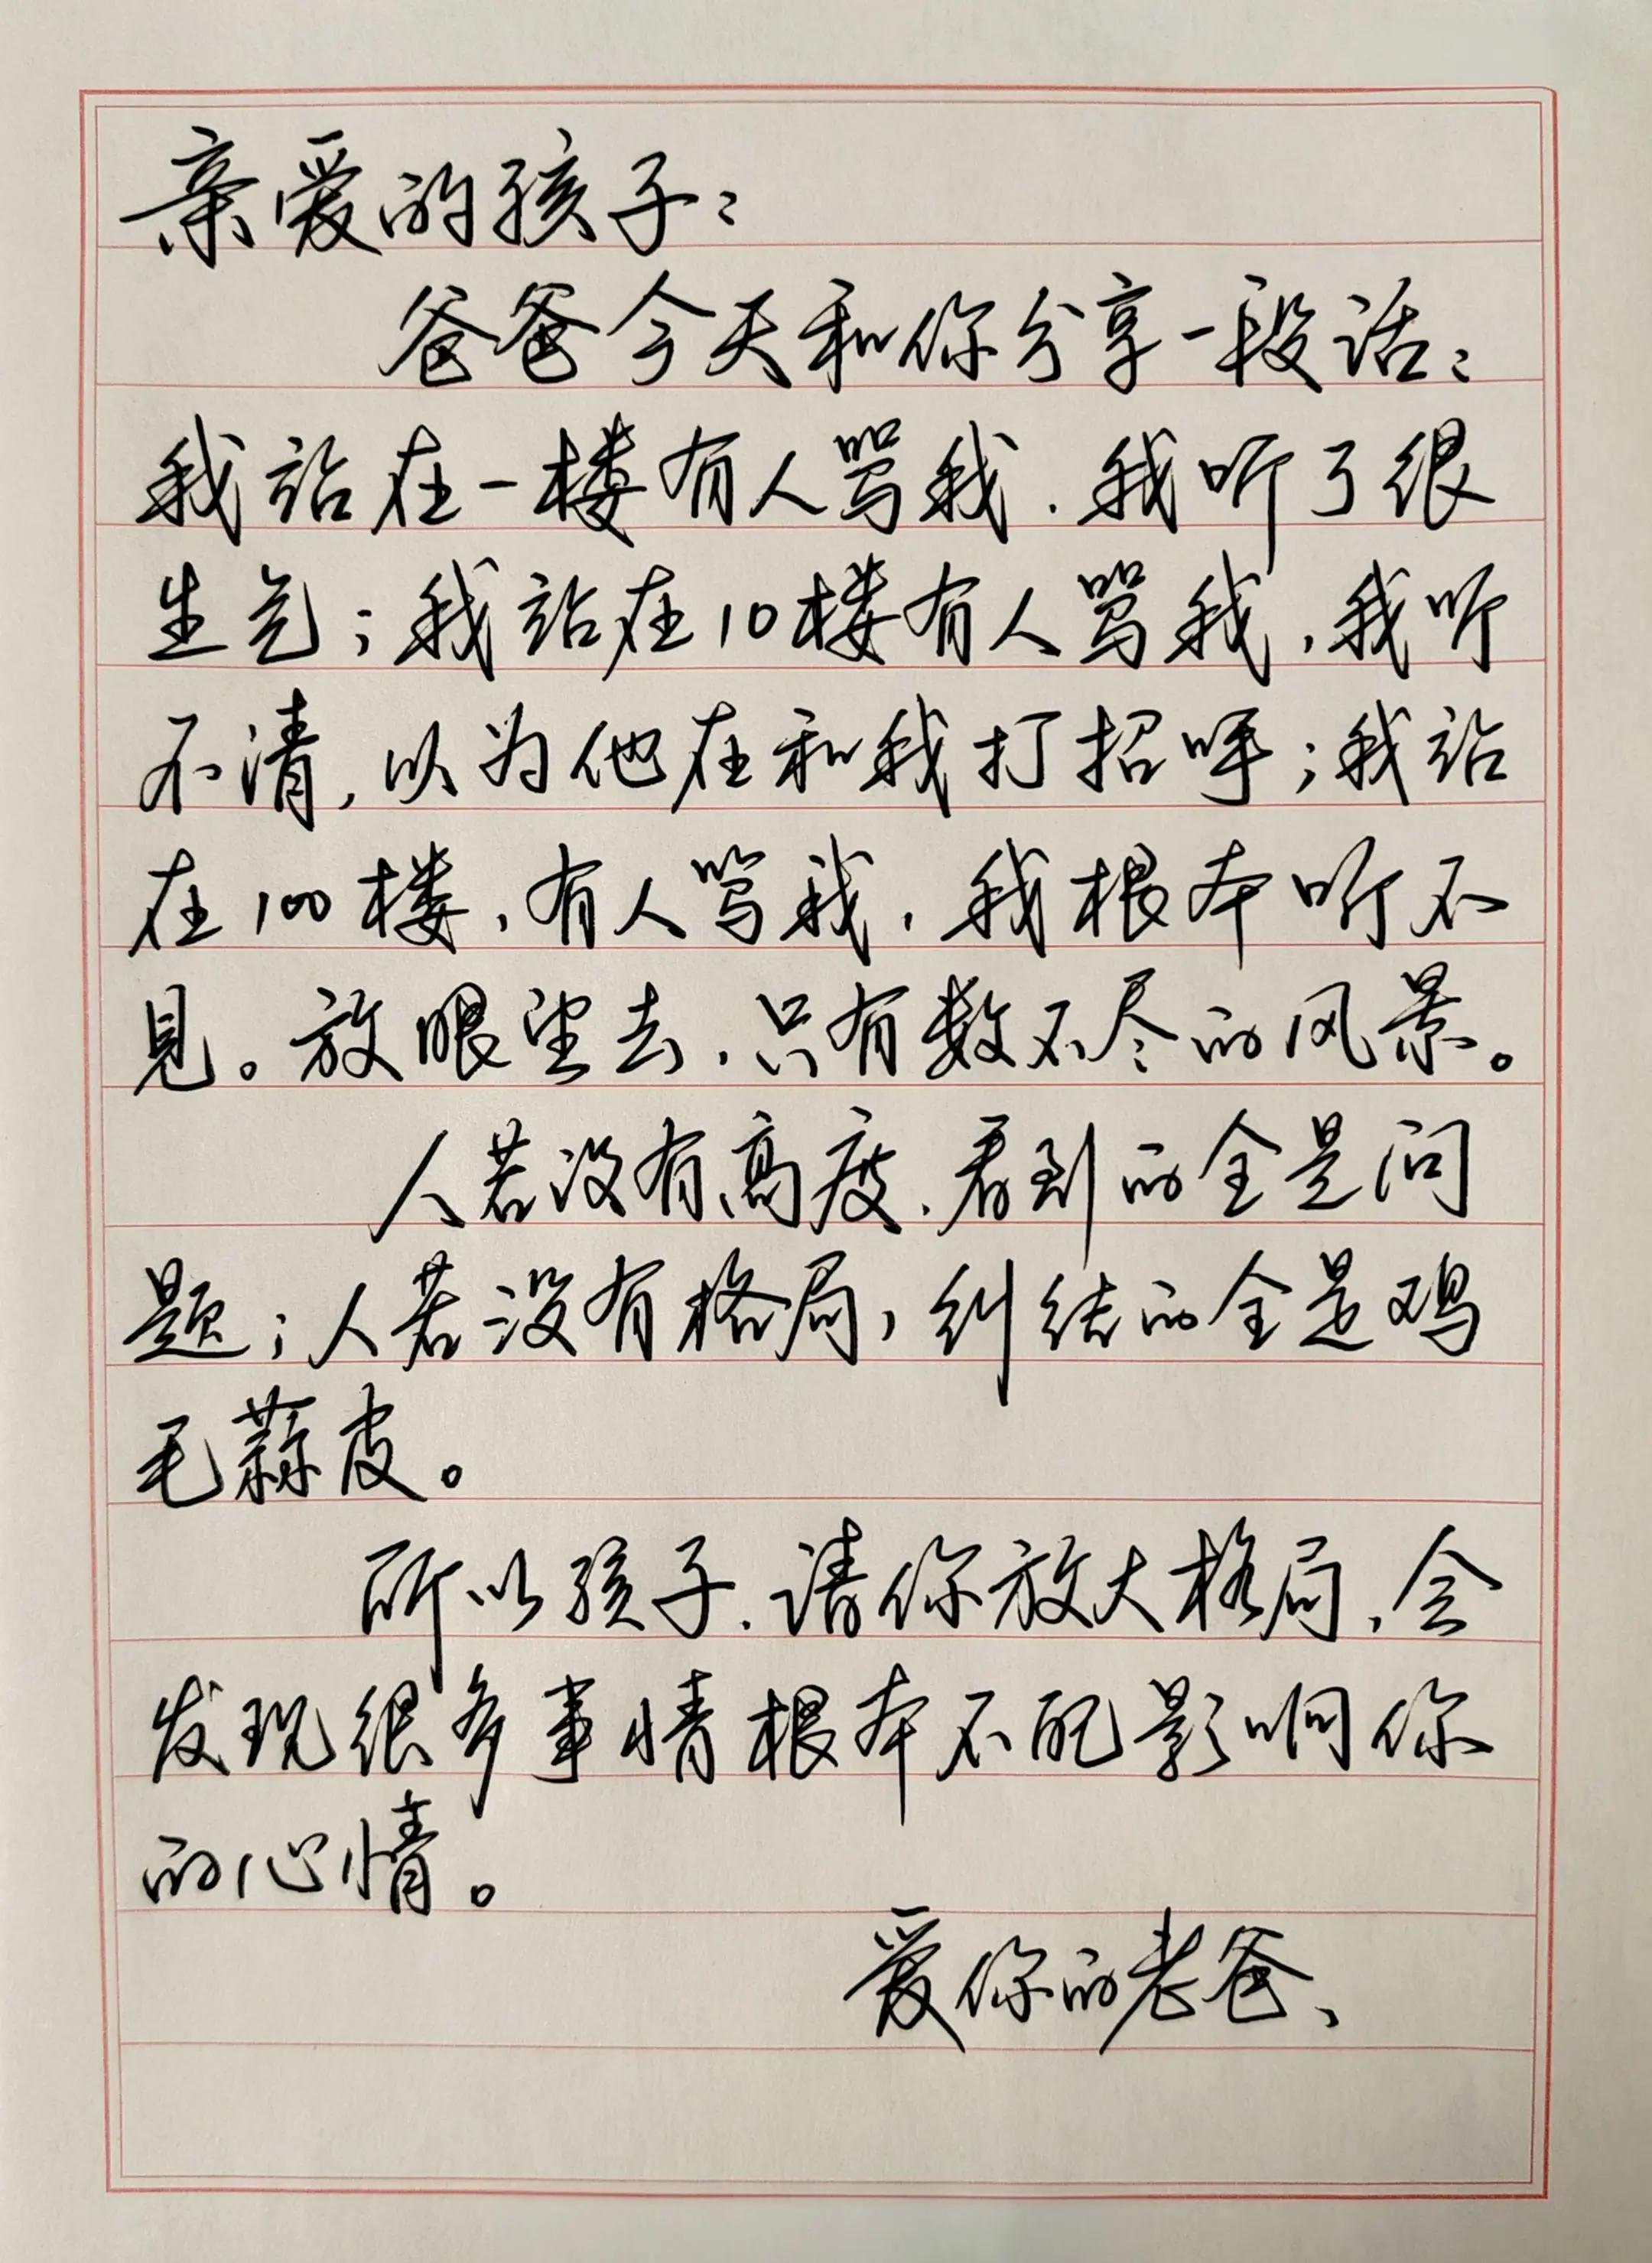 亲爱的孩子：
爸爸今天和你分享一段话：
我站在一楼有人骂我，我听了很
生气；我站在10楼有人骂我，我听
不清，以为他在和我打招呼；我站
在100楼，有人骂我，我根本听不
见。放眼望去，只有数不尽的风景。
人若没有高度，看到的全是问
题；人若没有格局，纠结的全是鸡
毛蒜皮。
所以孩子，请你放大格局，会
发现很多事情根本不配影响你
的心情。
爱你的老爸、